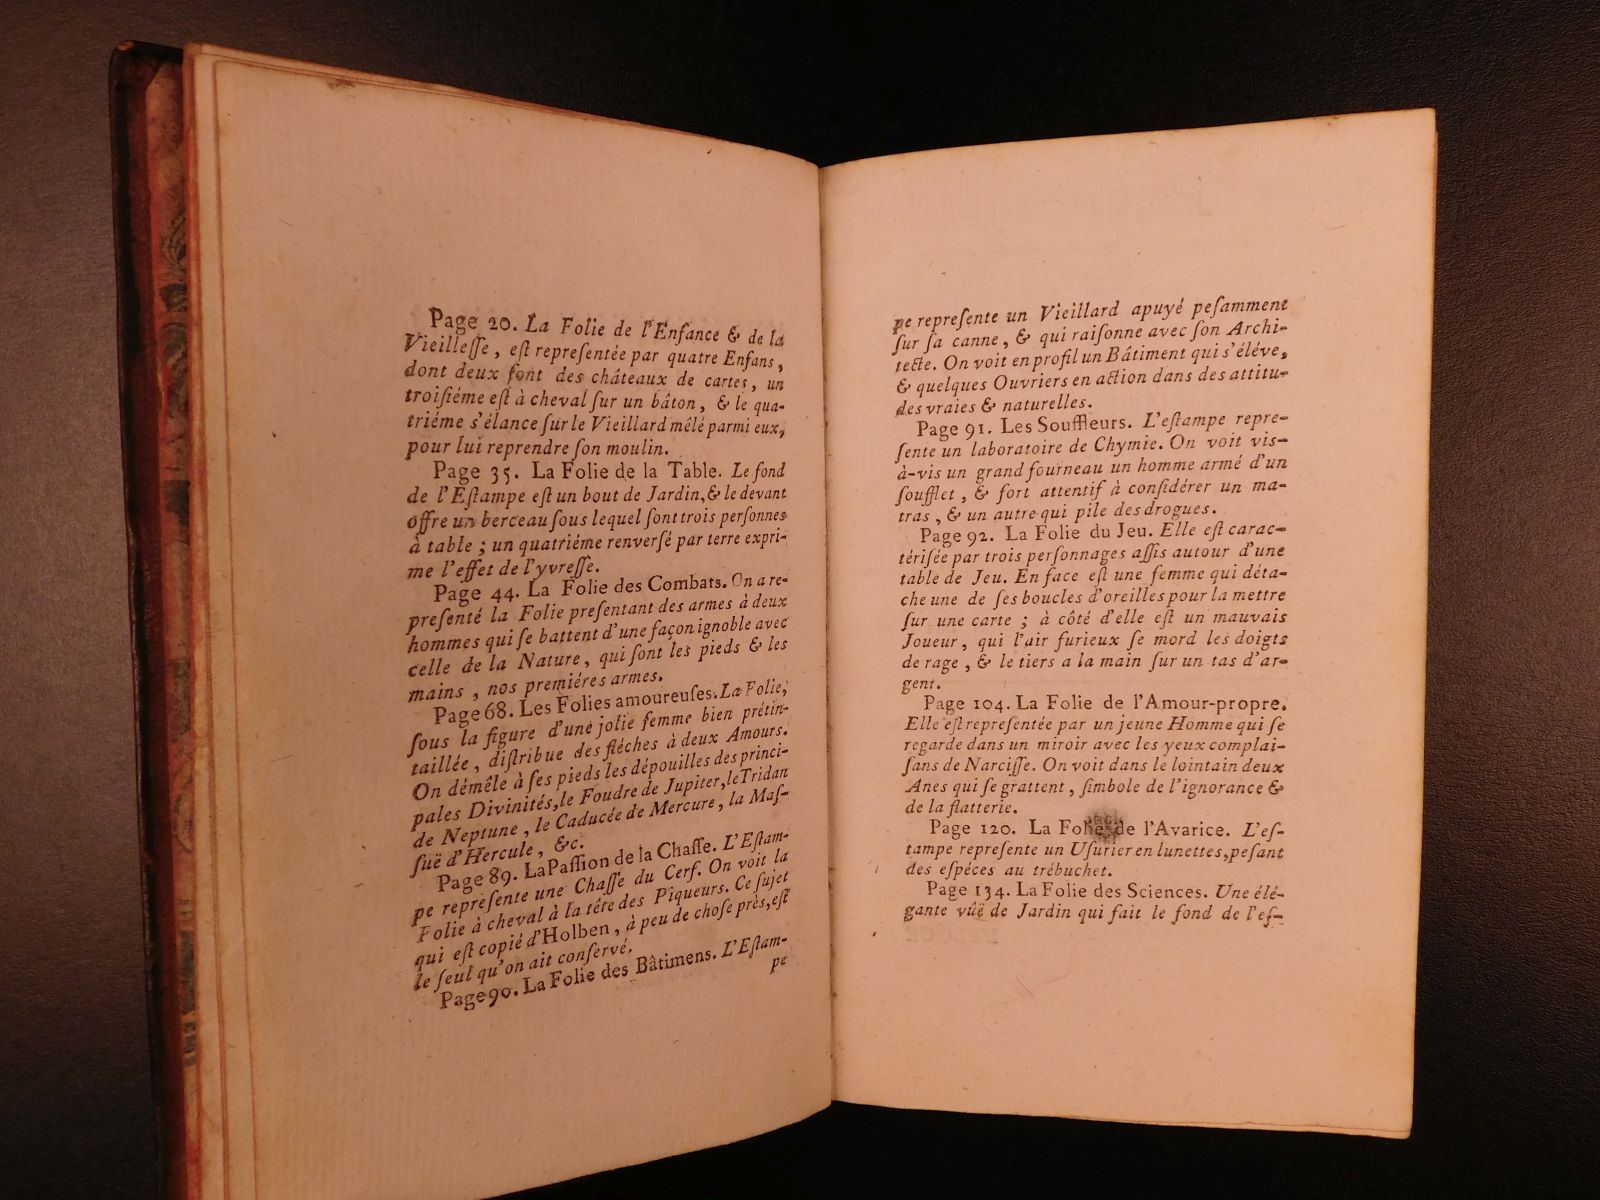 Page 20. La Folie de l'Enfance & de la
Vieilleſſe, eſt repreſentée par quatre Enfans,
dont deux font des châteaux de cartes, un
troiſiéme eſt à cheval ſur un bâton, & le qua-
triéme s'élance ſur le Vieillard mêlé parmi eux,
pour lui reprendre ſon moulin.
Page 35. La Folie de la Table. Le fond
de l'Eſtampe eſt un bout de Jardin, & le devant
offre un berceau ſous lequel ſont trois perſonnes
à table; un quatriéme renverſé par terre expri-
me l'effet de l'yvreſſe.
Page 44. La Folie des Combats. On a re-
preſenté la Folie preſentant des armes à deux
hommes qui ſe battent d'une façon ignoble avec
celle de la Nature, qui ſont les pieds & les
mains, nos premiéres armes.
Page 68. Les Folies amoureuſes. La Folie,
ſous la figure d'une jolie femme bien prétin-
taillée, diſtribue des fléches à deux Amours.
On démêle à ſes pieds les dépouilles des princi-
pales Divinités, le Foudre de Jupiter, le Tridan
de Neptune, le Caducée de Mercure, la Maſ-
ſuë d'Hercule, &c.
Page 89. La Paſſion de la Chaſſe. L'Eſtam-
pe repréſente une Chaſſe du Cerf. On voit la
Folie à cheval à la tête des Piqueurs. Ce ſujet
qui eſt copié d'Holben, à peu de choſe près, eſt
le ſeul qu'on ait conſervé.
Page 90. La Folie des Bâtimens. L'Eſtam-
pe
pe repreſente un Vieillard apuyé peſamment
ſur ſa canne, & qui raiſonne avec ſon Archi-
tecte. On voit en profil un Bâtiment qui s'éléve,
& quelques Ouvriers en action dans des attitu-
des vraies & naturelles.
Page 91. Les Souffleurs. L'eſtampe repre-
ſente un laboratoire de Chymie. On voit vis-
à-vis un grand fourneau un homme armé d'un
ſoufflet, & fort attentif à conſidérer un ma-
tras, & un autre qui pile des drogues.
Page 92. La Folie du Jeu. Elle eſt carac-
tériſée par trois perſonnages aſſis autour d'une
table de Jeu. En face eſt une femme qui déta-
che une de ſes boucles d'oreilles pour la mettre
ſur une carte; à côté d'elle eſt un mauvais
Joueur, qui l'air furieux ſe mord les doigts
de rage, & le tiers a la main ſur un tas d'ar-
gent.
Page 104. La Folie de l'Amour-propre.
Elle eſt repreſentée par un jeune Homme qui ſe
regarde dans un miroir avec les yeux complai-
ſans de Narciſſe. On voit dans le lointain deux
Anes qui ſe grattent, ſimbole de l'ignorance &
de la flatterie.
Page 120. La Folie de l'Avarice. L'eſ-
tampe repreſente un Uſurier en lunettes, peſant
des eſpéces au trébuchet.
Page 134. La Folie des Sciences. Une élé-
gante vûë de Jardin qui fait le fond de l'eſ-